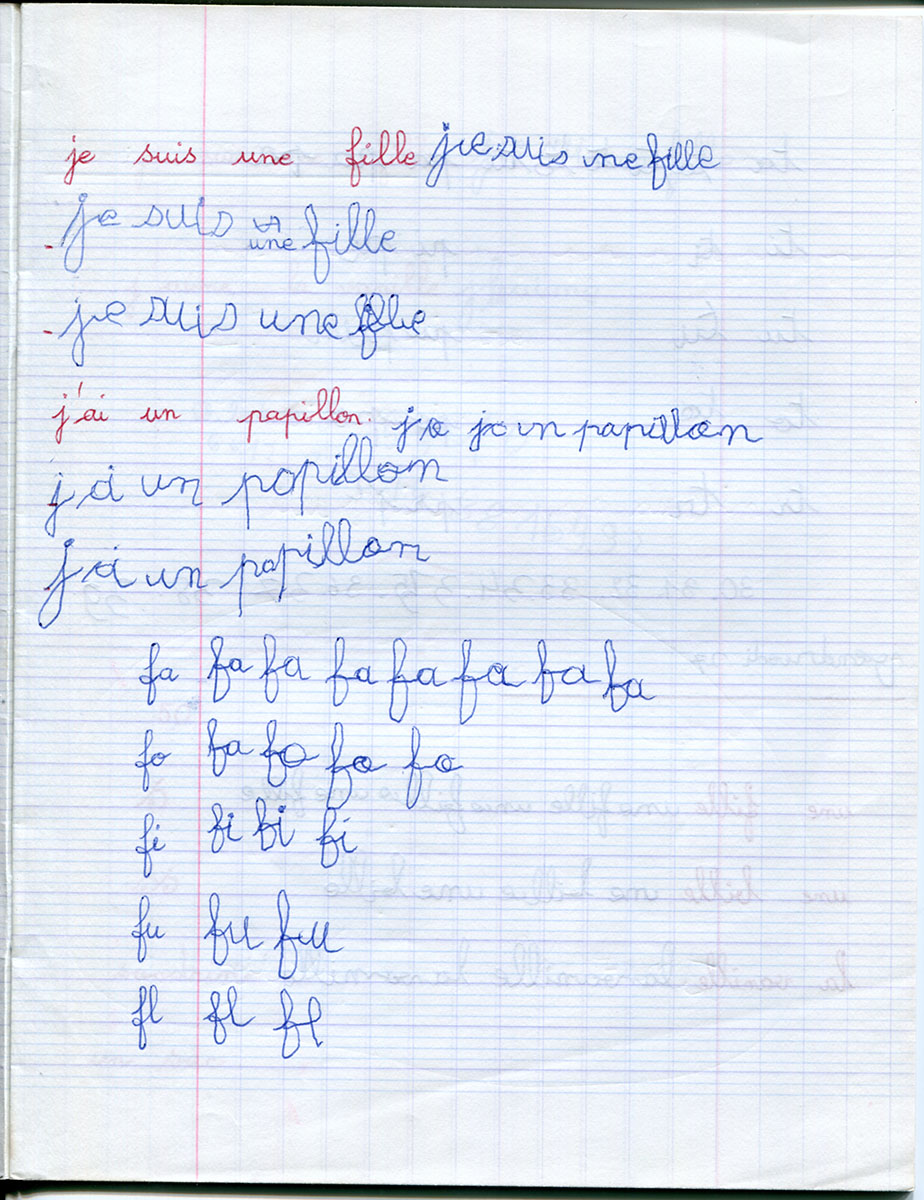 je suis une fille je suis une fille
je suis une fille
je suis une fille
j'ai un papillon. ja ja un papillon
j ai un papillon
j ai un papillon
fa fa fa fa fa fa fa fa
fo fa fo fo fo
fi fi fi fi
fu fu fu
fl fl fl